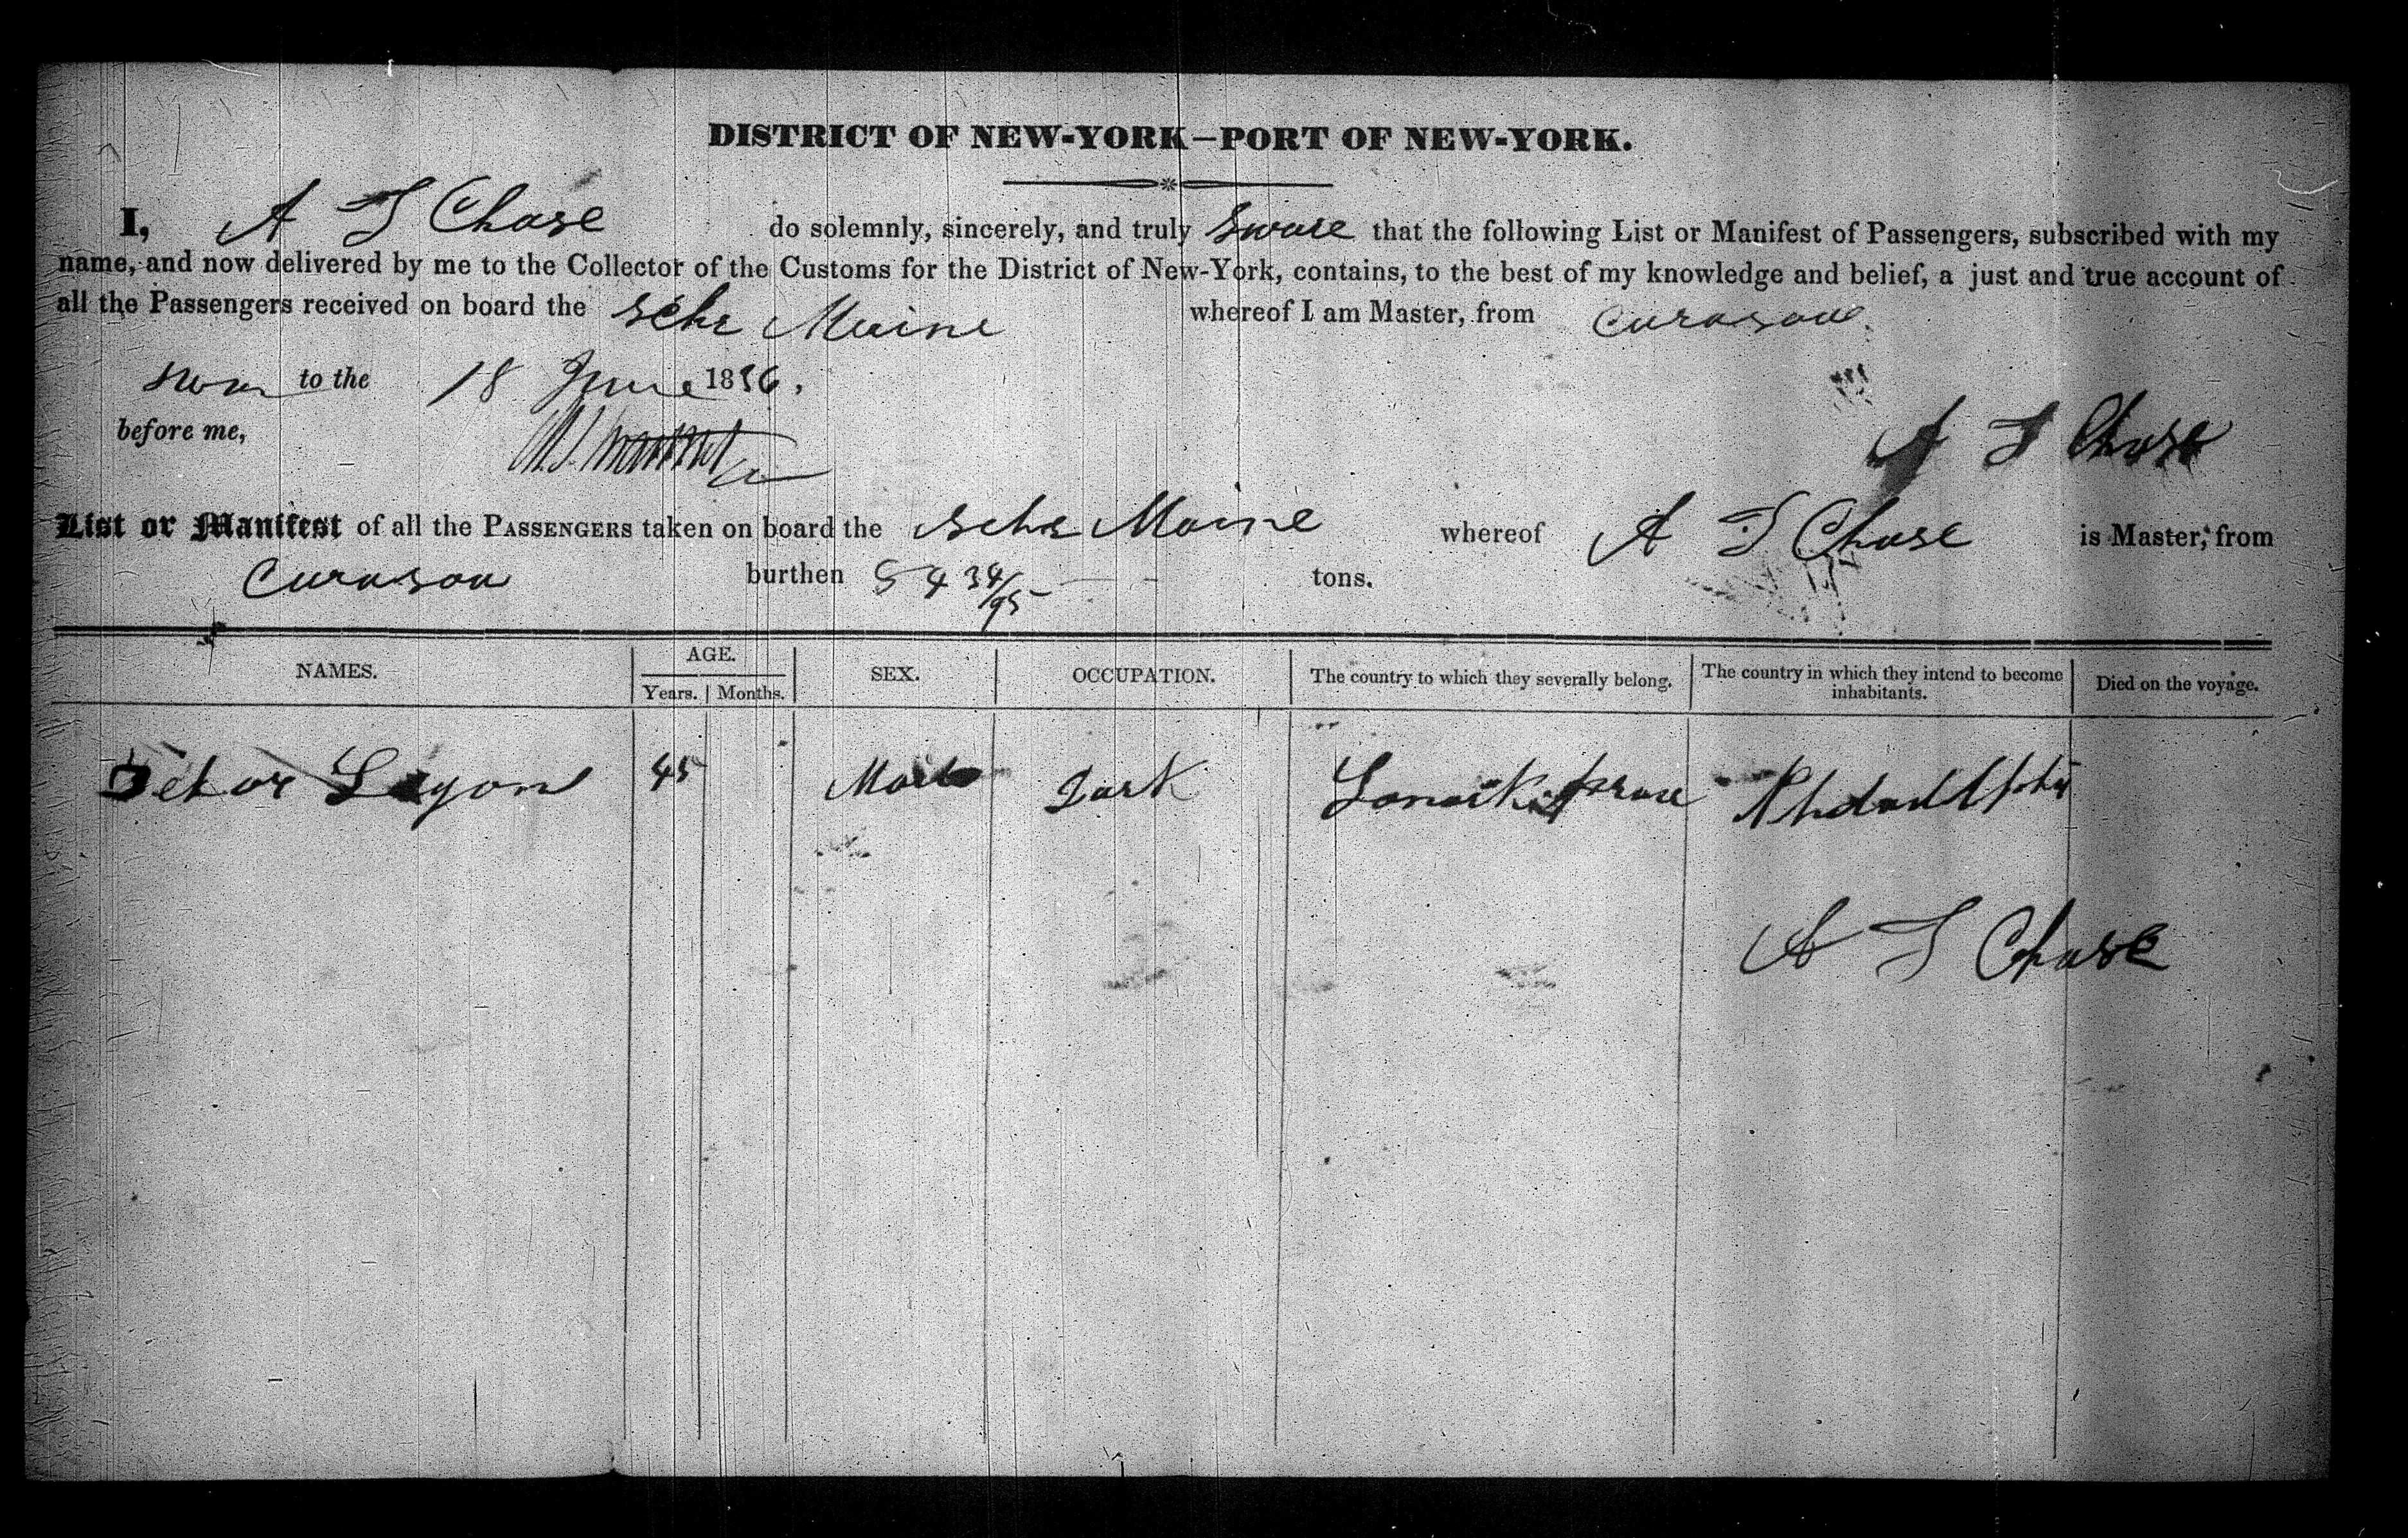 DISTRICT OF NEW-YORK—PORT OF NEW-YORK.
I, A J Chase do solemnly, sincerely, and truly sware that the following List or Manifest of Passengers, subscribed with my
name, and now delivered by me to the Collector of the Customs for the District of New-York, contains, to the best of my knowledge and belief, a just and true account of
all the Passengers received on board the Schr Maine whereof I am Master, from Curasou
to the 18 June 1856.
before me,
A J Chase
List or Manifest of all the PASSENGERS taken on board the Schr Maine whereof A J Chase is Master, from
Curasou burthen 54 34/95 tons.
NAMES. AGE. SEX. OCCUPATION. The country to which they severally belong. The country in which they intend to become inhabitants. Died on the voyage.
Years. Months.
45 Male
A J Chase